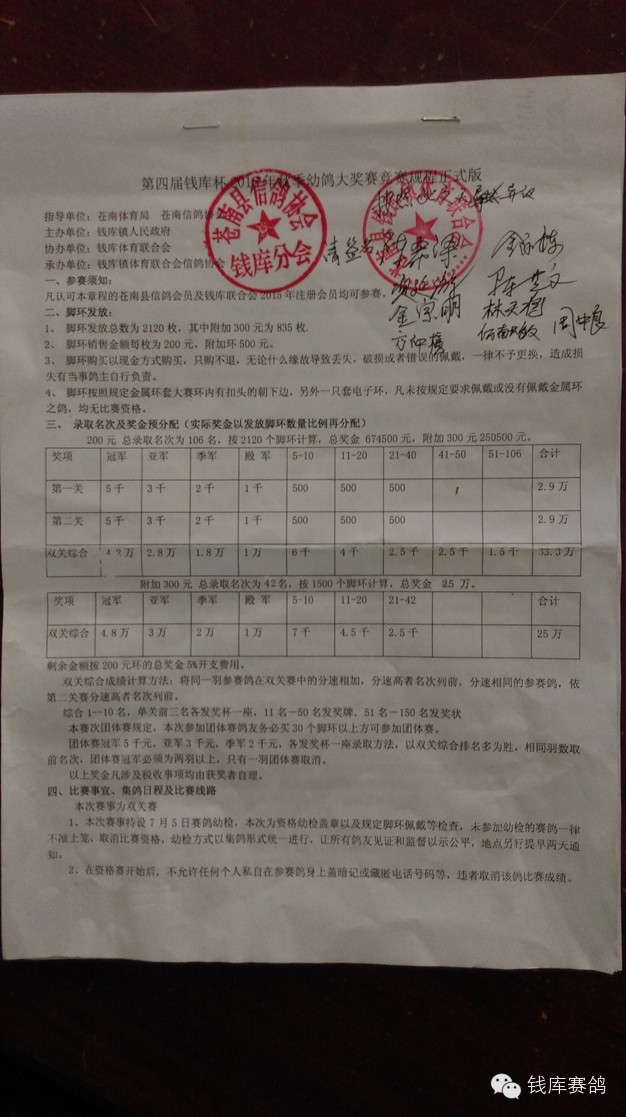 第四届钱库杯2015年秋季幼鸽大奖赛竞赛规程正式版
指导单位：苍南体育局 苍南信鸽协
主办单位：钱库镇人民政府
协办单位：钱库体育联合会
承办单位：钱库镇体育联合会信鸽协会
苍南县信鸽协会
钱库分会
金宗明
林天
一、参赛须知：
凡认可本章程的苍南县信鸽会员及钱库联合会2015年注册会员均可参赛。
二、脚环发放：
1、 脚环发放总数为2120枚，其中附加300元为835枚.
2、 脚环销售金额每枚为200元，附加环500元。
3、 脚环购买以现金方式购买，只购不退，无论什么缘故导致丢失，破损或者错误的佩戴，一律不予更换，造成损
失有当事鸽主自行负责。
4、 脚环按照规定金属环套大赛环内有扣头的朝下边，另外一只套电子环，凡未按规定要求佩戴或没有佩戴金属环
之鸽，均无比赛资格。
三、 录取名次及奖金预分配（实际奖金以发放脚环数量比例再分配）
200元 总录取名次为106名，按2120个脚环计算，总奖金 674500元，附加300元250500元。
奖项 冠军 亚军 季军 殿 军 5-10 11-20 21-40 41-50 51-106 合计
第一关 5千 3千 2千 1千 500 500 500 2.9万
第二关 5千 3千 2千 1千 500 500 500 2.9万
双关综合 4.2万 2.8万 1.8万 1万 6千 4千 2.5千 2.5千 1.5千 33.3万
附加300元 总录取名次为42名，按1500个脚环计算，总奖金 25万。
奖项 冠军 亚军 季军 殿 军 5-10 11-20 21-42 合计
双关综合 4.8万 3万 2万 1万 7千 4.5千 2.5千 25万
剩余金额按200元环的总奖金5%开支费用。
双关综合成绩计算方法：将同一羽参赛鸽在双关赛中的分速相加，分速高者名次列前，分速相同的参赛鸽，依
第二关赛分速高者名次列前。
综合1--10名，单关前三名各发奖杯一座，11名－50名发奖牌．51名－150名发奖状
本赛次团体赛规定，本次参加团体赛鸽友务必买30个脚环以上方可参加团体赛。
团体赛冠军5千元，亚军3千元，季军2千元，各发奖杯一座录取方法，以双关综合排名多为胜，相同羽数取
前名次，团体赛冠军必须为两羽以上，只有一羽团体赛取消。
以上奖金凡涉及税收事项均由获奖者自理。
四、比赛事宜、集鸽日程及比赛线路
本次赛事为双关赛
1、本次赛事特设7月5日赛鸽幼检，本次为资格幼检盖章以及规定脚环佩戴等检查，未参加幼检的赛鸽一律
不准上笼，取消比赛资格，幼检方式以集鸽形式统一进行，让所有鸽友见证和监督以示公平，地点另行提早两天通
知。
2、在资格赛开始后，不允许任何个人私自在参赛鸽身上盖暗记或藏匿电话号码等，违者取消该鸽比赛成绩。
钱库赛鸽